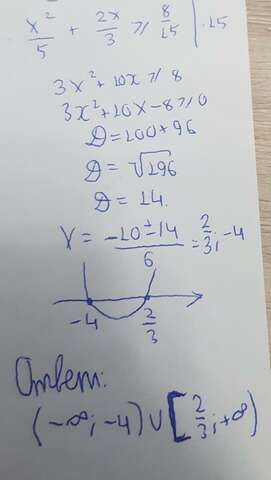 x²/5 + 2x/3 ⩾ 8/15 | ·15
3x²+10x ⩾ 8
3x²+10x-8⩾0
D=100+96
D=√196
D=14.
X = (-10±14)/6 = 2/3; -4
-4 2/3
Ответ:
(-∞; -4) ∪ [2/3; +∞)